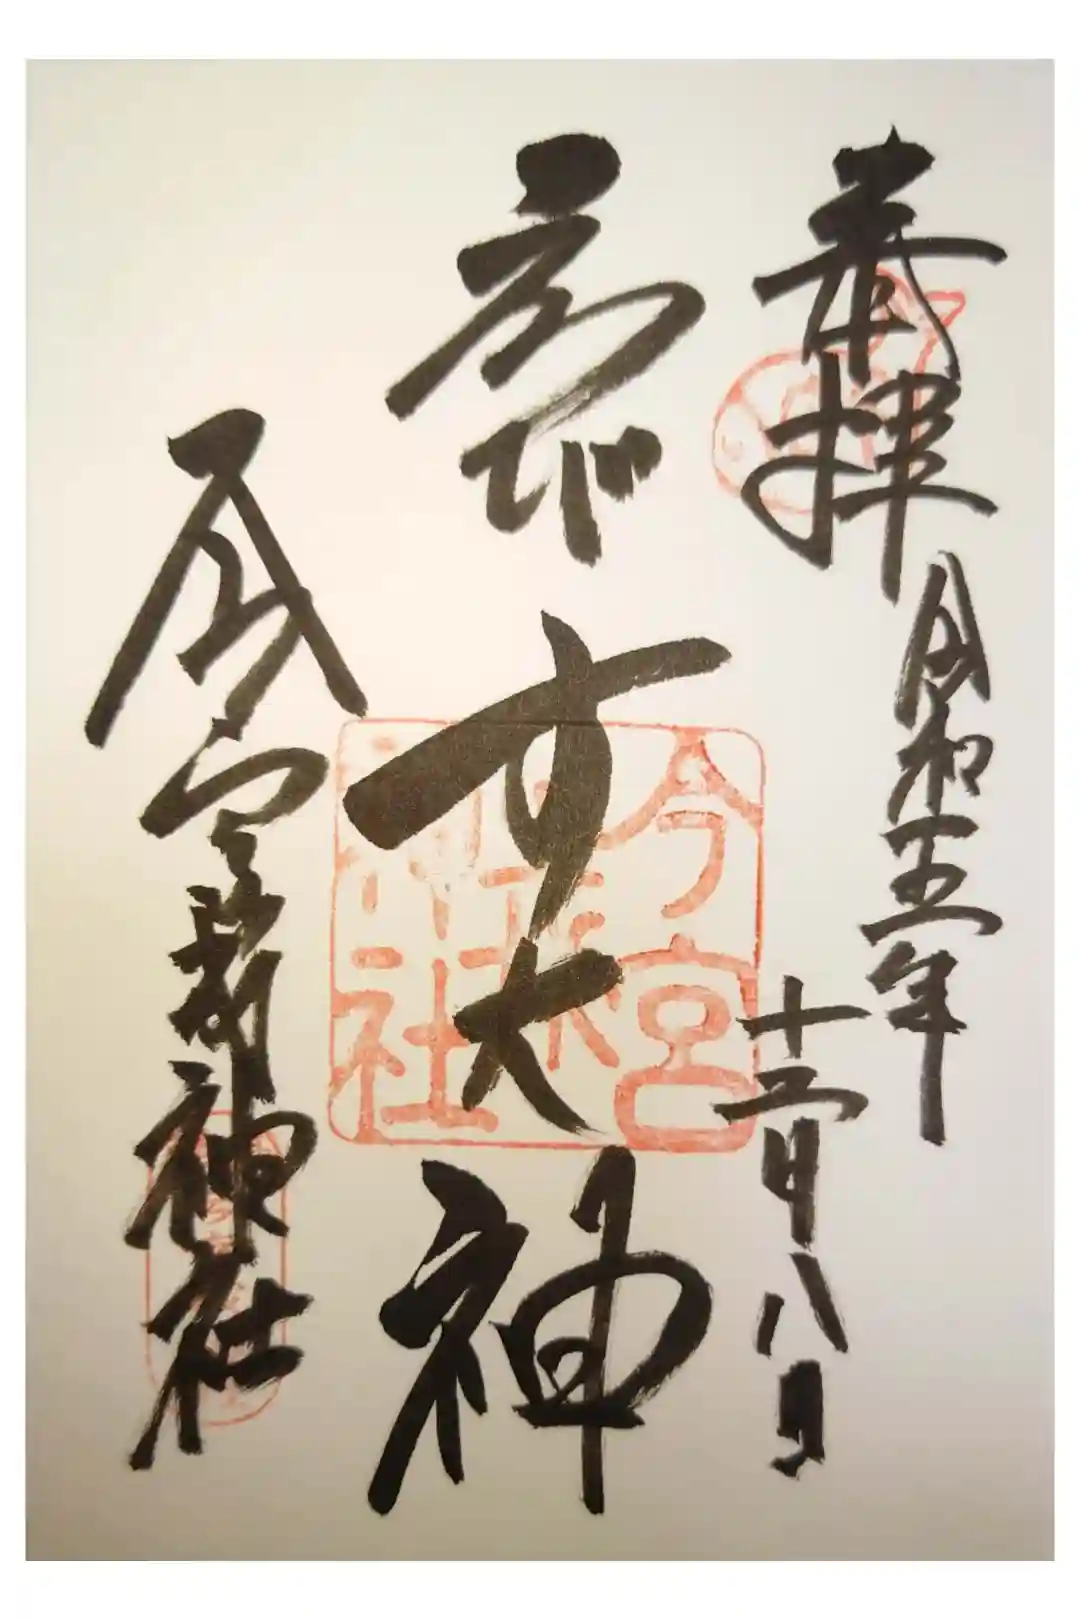 奉拝
令和五年
十二月八日
ゑびす大神
今宮戎神社
今宮
神社